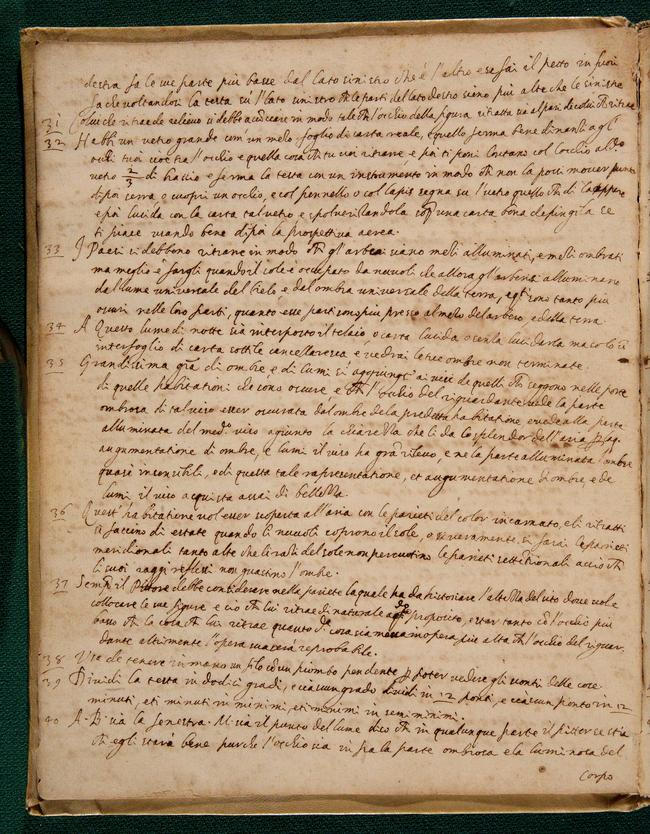 destra fa le sue parte più basse dal lato sinistro che è l'altro e se fai il petto in fuori
fa che voltandosi la testa su l'lato sinistro ch le parti del lato destro sieno più alte che le sinistre
31 Colui che ritrae de relievo si debbe acconciare in modo tale ch l'occhio della figura ritratta sia al pari de colui ch ritrae
32 Habbi un vetro grande com' un mezo foglio di carta reale, e quello ferma bene dinanzi a gl'
occhi tuoi cioè tra l'occhio e quella cosa ch tu voi ritrarre e poi ti poni lontano col l'occhio al do
vetro 2/3 di braccio e ferma la testa con un instrumento in modo ch non la possi mover punto
di poi serra, e cuopri un occhio, e col pennello o col lapis segna su l'vetro quello ch di là appare
e poi lucida con la carta tal vetro e spolverizandola sop una carta bona depingila se
ti piace usando bene di poi la prospettiva aerea.
33 I Paesi si debbono ritrarre in modo ch gl' arberi siano mezi illuminati, e mezi ombrati
ma meglio è fargli quando il sole è occupato da nuvoli che allora gl' arberi s'alluminano
dal lume universale del Cielo e dal ombra universale della terra, e questi sono tanto più
oscuri nelle loro parti, quanto esse parti sono più presso al mezo del arbero e della terra.
34 A Questo lume di notte sia interposto il telaio o carta lucida o senza lucidarla ma solo il
interfoglio di carta sottile cancellaresca e vedrai le tue ombre non terminate.
35 Grandissima gra di ombre, e di lumi si aggiungi ai visi de quelli ch seggono nelle porte
di quelle habitationi che sono oscure e ch l'occhio del riguardante vede la parte
ombrosa di tal viso esser oscurata dal ombre de la predetta habitatione e vede alla parte
alluminata del medo viso agiunto la chiarezza che li da lo splendor dell'aria p laq.
augumentatione di ombre, e lumi il viso ha gra rilievo, e ne la parte alluminata l'ombre
quasi insensibili, e di questa tale rapresentatione, et augumentatione di ombre, e de
lumi il viso acquista assai di bellezza.
36 Quest' habitatione vol esser scoperta all'aria con le parieti del color incarnato, e li ritratti
si faccino di estate quando li nuvoli coprono il sole, o veramente si farai le parieti
meridionali tanto alte che li razi del sole non percuotino le parieti settentrionali accio ch
li suoi raggi reflessi non guastino l'ombre.
37 Semp il Pittore debbe considerare nella pariete la quale ha da historiare l'altezza del sito dove vole
collocare le sue figure e cio ch lui ritrae di naturale a do proposito, e star tanto co l'occhio più
basso ch la cosa ch lui ritrae quanto da cosa sia messa in opera più alta ch l'occhio del riguar,
dante altrimente l'opera sua sarà reprobabile.
38 Usa de tenere in mano un filo co un piombo pendente p poter vedere gli scontri delle cose
39 Dividi la testa in dodici gradi, e ciascun grado dividi in 12 ponti, e ciascun ponto in 12
minuti, et i minuti in minimi, et i minimi in semiminimi.
40 A. B. sia la fenestra. M sia il punto del lume dico ch in qualunque parte il pittor se stia
ch egli starà bene purche l'occhio sia in fra la parte ombrosa e la luminosa del
Corpo